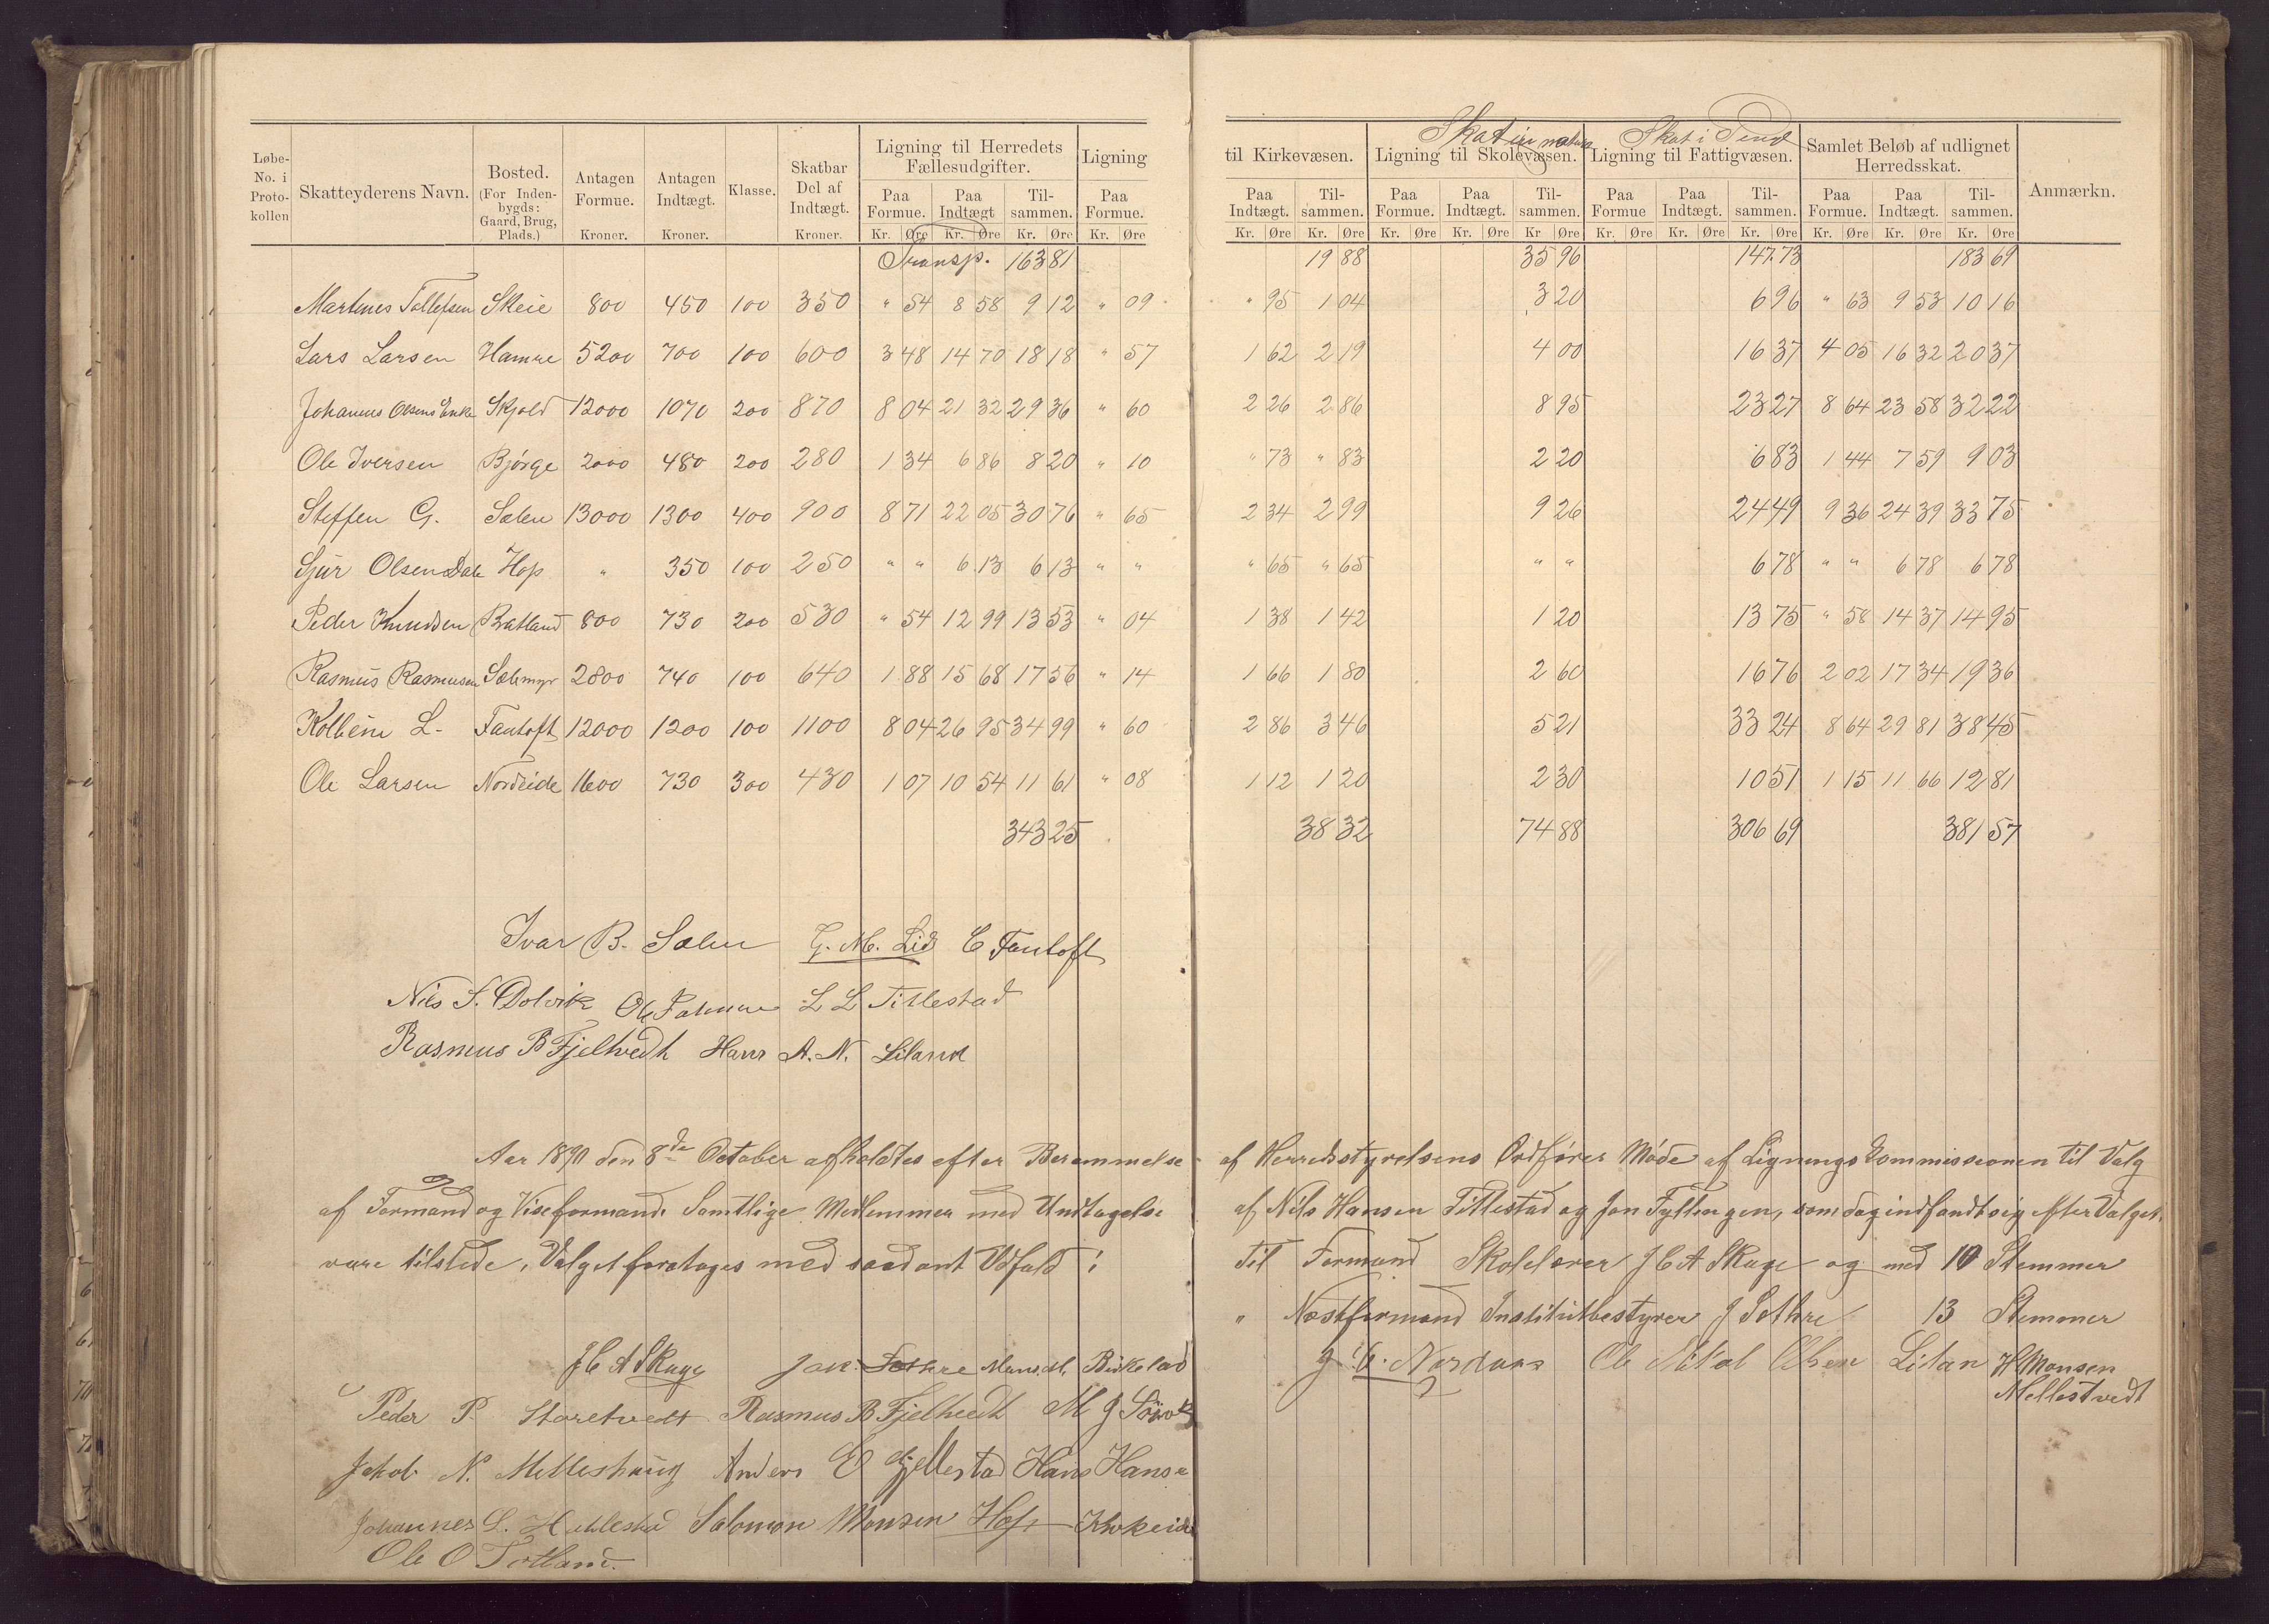 Skat in natura Skat i Pend
Løbe-No. i Protokollen | Skatteyderens Navn. | Bosted. (For Indenbygds: Gaard, Brug, Plads.) | Antagen Formue. Kroner. | Antagen Indtægt. Kroner. | Klasse. | Skatbar Del af Indtægt. Kroner. | Ligning til Herredets Fællesudgifter. Paa Formue. Kr. Øre Paa Indtægt Kr. Øre Tilsammen. Kr. Øre | Ligning Paa Formue. Kr. Øre | til Kirkevæsen. Paa Indtægt. Kr. Øre Tilsammen. Kr. Øre | Ligning til Skolevæsen. Paa Formue. Kr. Øre Paa Indtægt. Kr. Øre Tilsammen. Kr Øre | Ligning til Fattigvæsen. Paa Formue Kr. Øre Paa Indtægt. Kr. Øre Tilsammen. Kr. Øre | Samlet Beløb af udlignet Herredsskat. Paa Formue. Kr. Øre Paa Indtægt. Kr. Øre Tilsammen. Kr. Øre | Anmærkn.
Transp. 163 81 19 88 35 96 147 73 183 69
Martines Tollefsen Skeie 800 450 100 350 " 54 8 58 9 12 " 09 " 95 1 04 3 20 6 96 " 63 9 53 10 16
Lars Larsen Hamre 5200 700 100 600 3 48 14 70 18 18 " 57 1 62 2 19 4 00 16 37 4 05 16 32 20 37
Johannes Olsens Enke Skjold 12000 1070 200 870 8 04 21 32 29 36 " 60 2 26 2 86 8 95 23 27 8 64 23 58 32 22
Ole Iversen Bjørge 2000 480 200 280 1 34 6 86 8 20 " 10 " 73 " 83 2 20 6 83 1 44 7 59 9 03
Steffen G. Sælen 13000 1300 400 900 8 71 22 05 30 76 " 65 2 34 2 99 9 26 24 49 9 36 24 39 33 75
Sjur Olsen Dale Hop " 350 100 250 " " 6 13 6 13 " " " 65 " 65 " " 6 78 " " 6 78 6 78
Peder Knudsen Bratland 800 730 200 530 " 54 12 99 13 53 " 04 1 38 1 42 1 20 13 75 " 58 14 37 14 95
Rasmus Rasmusen Sælemyr 2800 740 100 640 1 88 15 68 17 56 " 14 1 66 1 80 2 60 16 76 2 02 17 34 19 36
Kolbein L. Fantoft 12000 1200 100 1100 8 04 26 95 34 99 " 60 2 86 3 46 5 21 33 24 8 64 29 81 38 45
Ole Larsen Nordeide 1600 730 300 430 1 07 10 54 11 61 " 08 1 12 1 20 2 30 10 51 1 15 11 66 12 81
343 25 38 32 74 88 306 69 381 57
Ivar B. Sælen G. M. Lid C Fantoft
Nils S. Dolvik Ole L L Tillestad
Rasmus B Fjelhvedt Hans A. N. Liland
Aar 1890 den 8de October afholdtes efter Berammelse af Herredsstyrelsens Ordfører Møde af Ligningskommissionen til Valg
af Formand og Viseformand. Samtlige Medlemmer med Undtagelse af Nils Hansen Tillestad og Jon Fyllingen, som dog indfandt sig efter Valget.
vare tilstede. Valget foretoges med saadant Udfald: Til Formand Skolelærer J C A Skage og med 10 Stemmer
" Næstformand Institutbestyrer J Sothre 13 Stemmer
J C A Skage Jak. Sothre Mons M. Birkelad J. C. Nordaas Ole Olsen Litan H Monsen
Mellestvedt
Peder P. Storetvedt Rasmus B Fjelhvedt M J
Jakob N. Melleshaug Anders E Gjellestad Hans Hansen
Johannes L. Salomon Monsen Hop Krokeide
Ole O Totland.